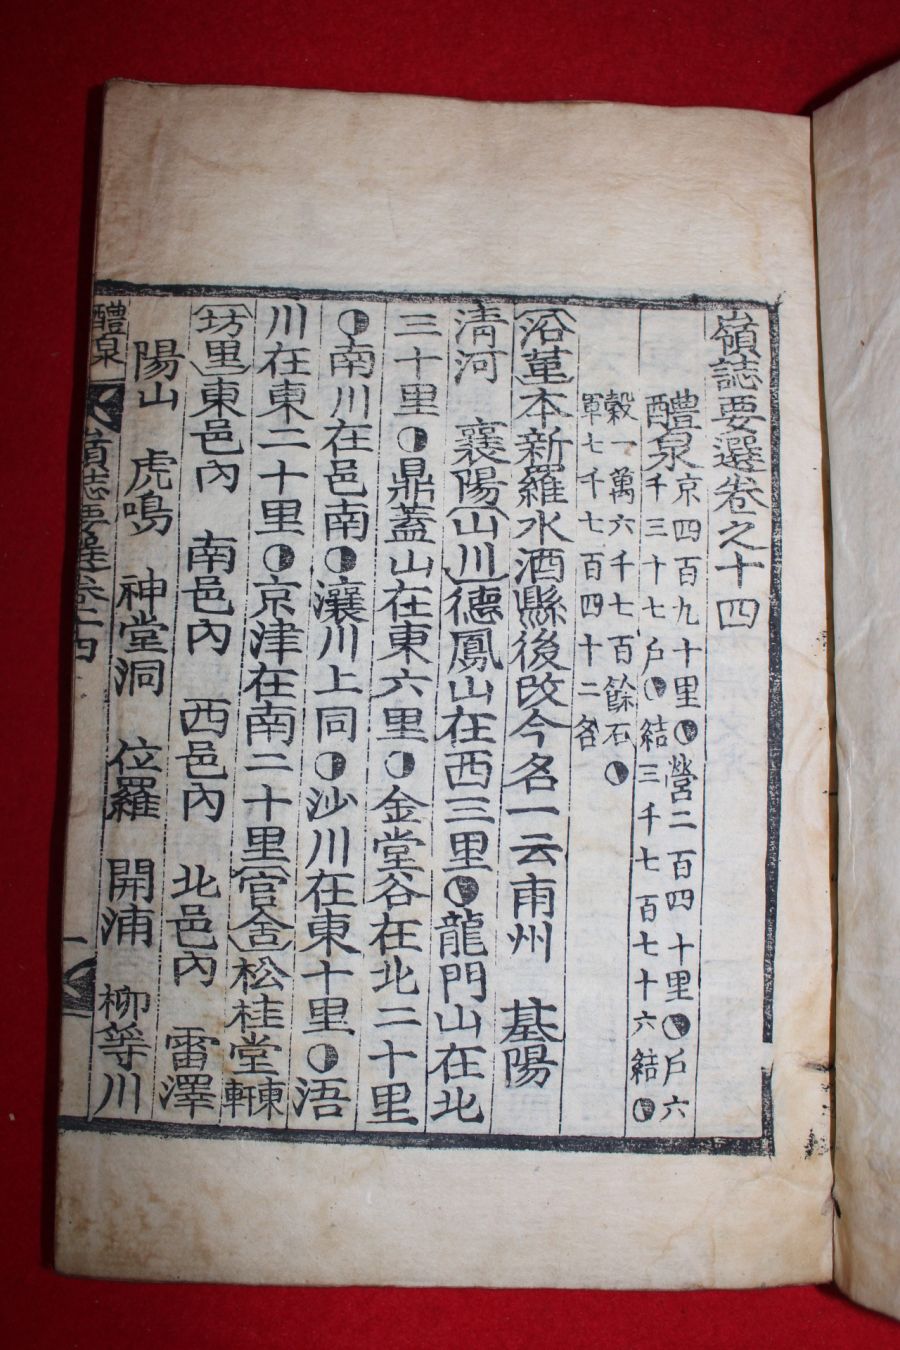 嶺誌要選卷之十四
醴泉京四百九十里◐營二百四十里◐戶六
千三十七戶◐結三千七百七十六結◐
穀一萬六千七百餘石◐
軍七千七百四十二名
〔沿革〕本新羅水酒縣後改今名一云甫州 基陽
清河 襄陽〔山川〕德鳳山在西三里◐龍門山在北
三十里◐鼎蓋山在東六里◐金堂谷在北二十里
◐南川在邑南◐瀼川上同◐沙川在東十里◐浯
川在東二十里◐京津在南二十里〔官舍〕松桂堂東軒
〔坊里〕東邑內 南邑內 西邑內 北邑內 雷澤
陽山 虎鳴 神堂洞 位羅 開浦 柳等川
醴泉 嶺誌要選卷十四 一